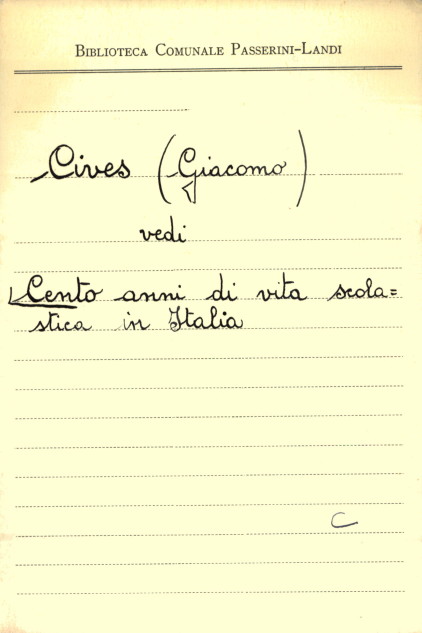 BIBLIOTECA COMUNALE PASSERINI-LANDI
Cives (Giacomo)
vedi
Cento anni di vita scola=
stica in Italia
C